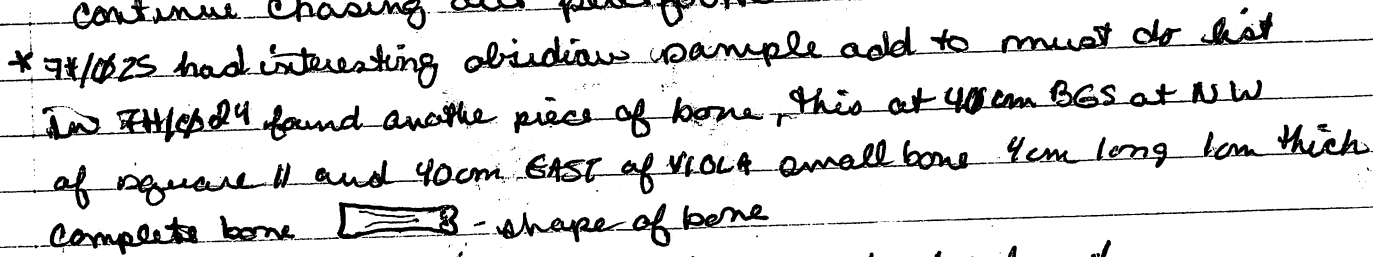 continue chasing
* 7H/Ø25 had interesting obsidian sample add to must do list
In 7H/Ø24 found anothe piece of bone, this at 40cm BGS at NW
of square 11 and 40cm EAST of VIOLA small bone 4cm long 1cm thick
complete bone - shape of bone